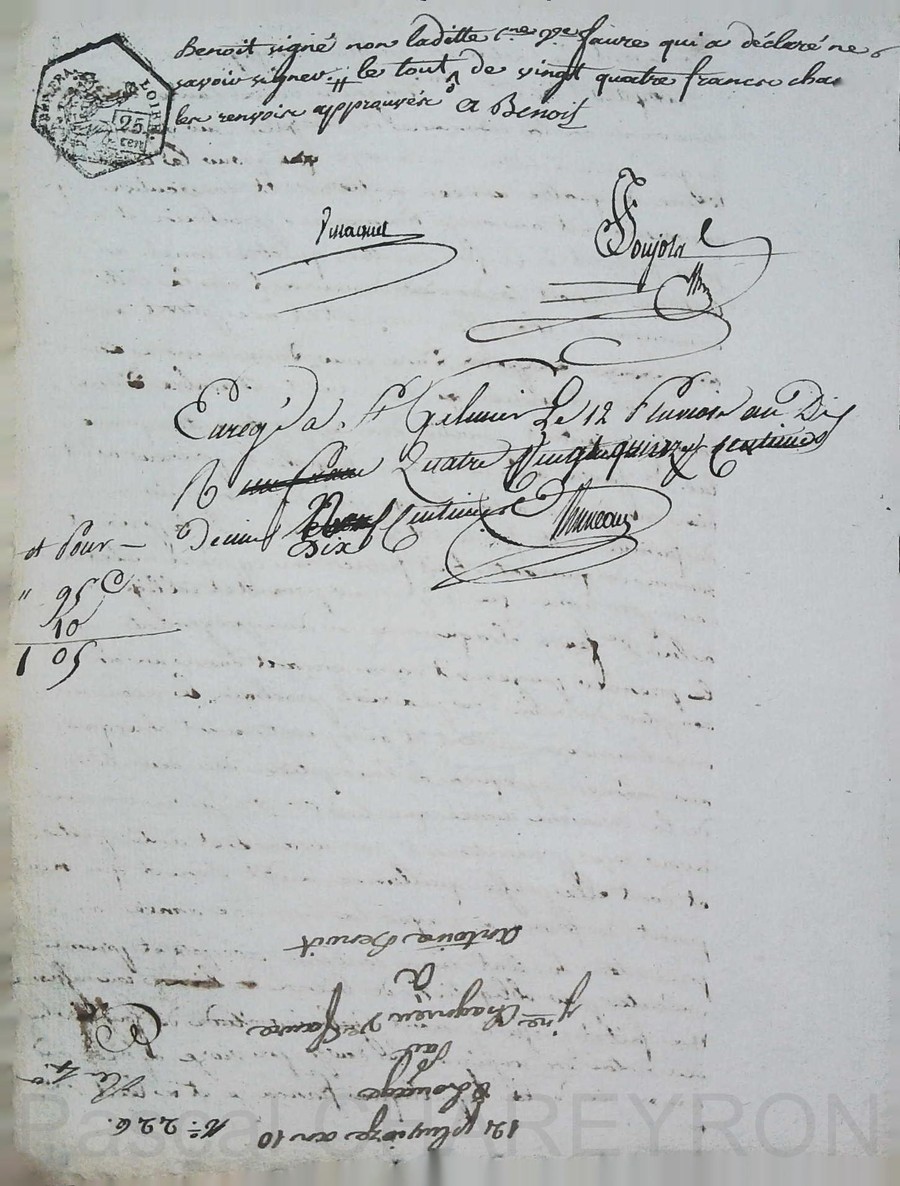 Benoit signé non laditte C.ne v.ve faure qui a déclaré ne
savoir signer. le tout de vingt quatre francs
les renvoirs approuvés A Benoit
LOIRE.
25
cen
Enregé a St Gelmier Le 12 Pluviose an Dix
R un franc Quatre Vingt quinze Centimes
Decime Centimes
Dix
et Pour —
" 95 C
10
1 05
antoine Benoit
A
veuve faure
fait
Louage
12 pluvioze an 10 N.o 226.
Pascal CHAREYRON